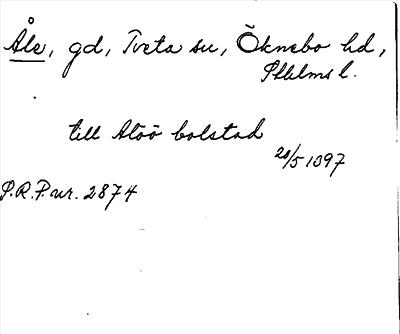 Åle, gd, Tveta sn, Öknebo hd,
Sthlms l.
till Aloö bolstad
20/5 1397
S.R.P. nr. 2874